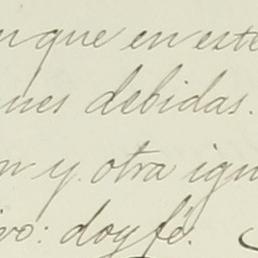 unque en este
nes debidas.
n y otra igu
vo: doy fé.